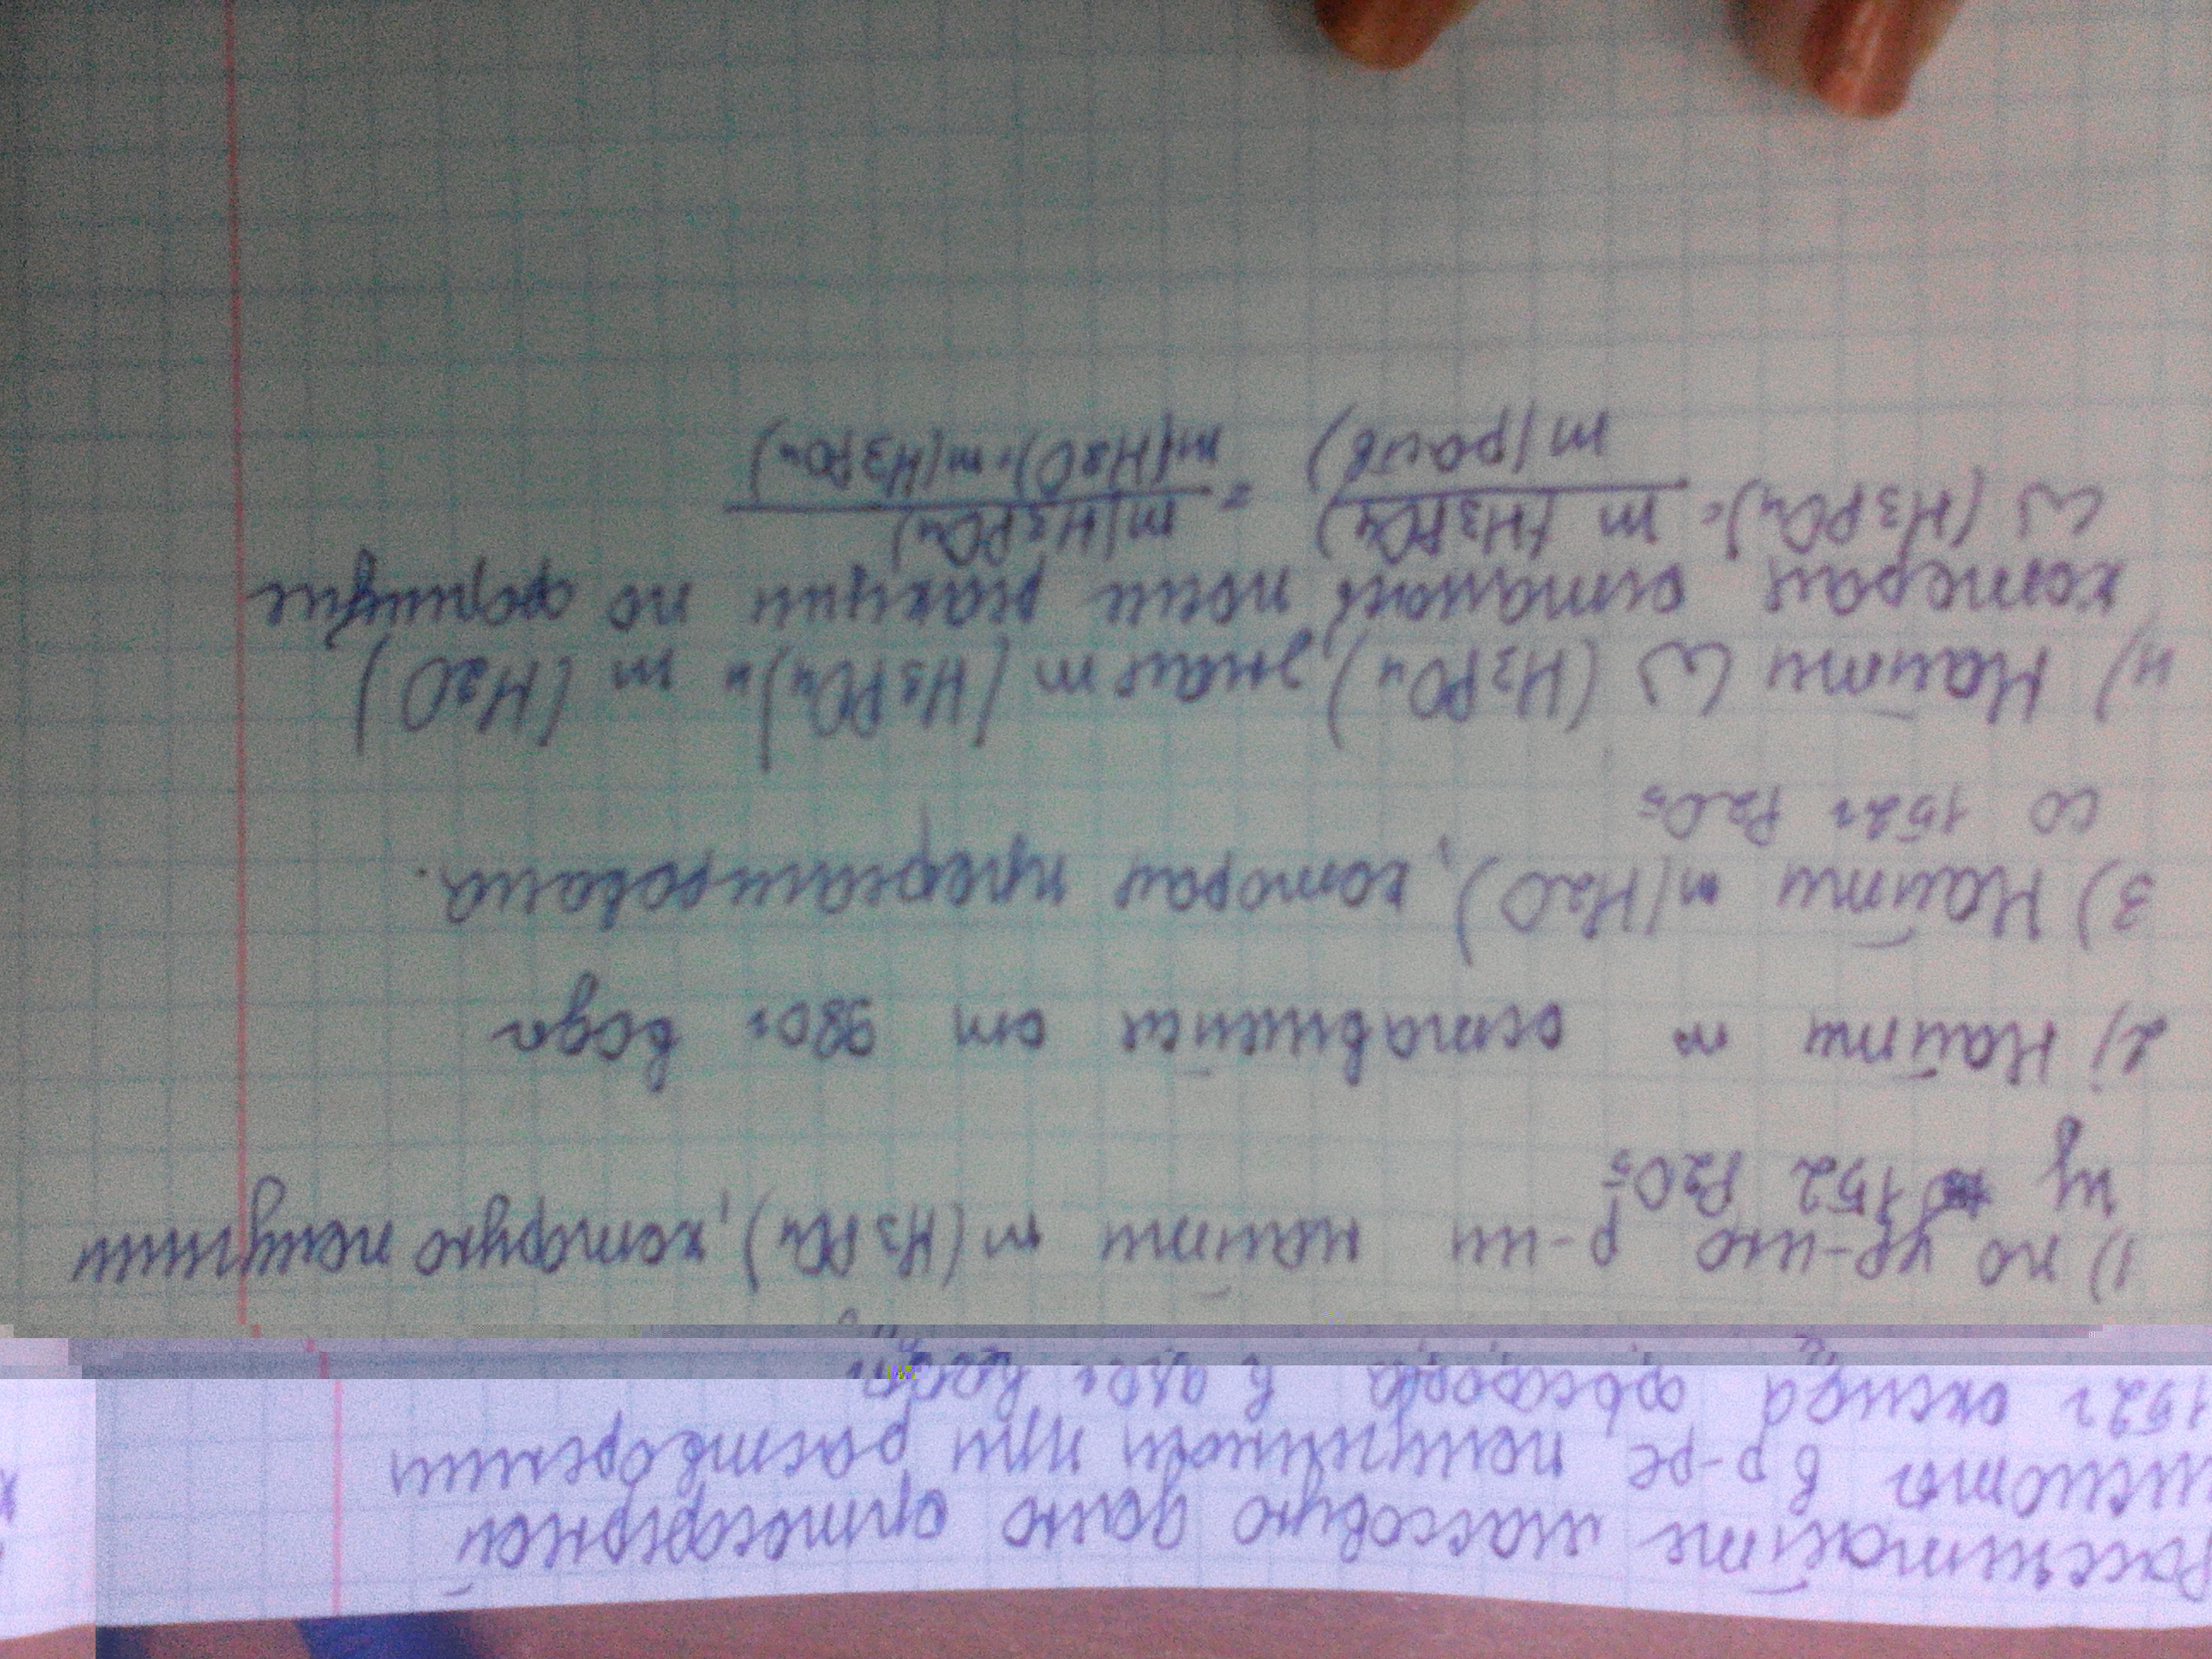 Рассчитайте массовую долю ортофосфорной
кислоты в р-ре полученной при растворении
152г оксида фосфора в воды
1) по ур-ию р-ии найти m(H3PO4), которую получили
из 152 P2O5
2) Найти m оставшейся от 980г воды
3) Найти m(H2O), которая прореагировала.
со 152г P2O5
4) Найти ω (H3PO4), зная m (H3PO4) и m (H2O)
которая осталась после реакции по формуле
ω (H3PO4) = m (H3PO4) / m(раств) = m(H3PO4) / m(H2O)+m(H3PO4)